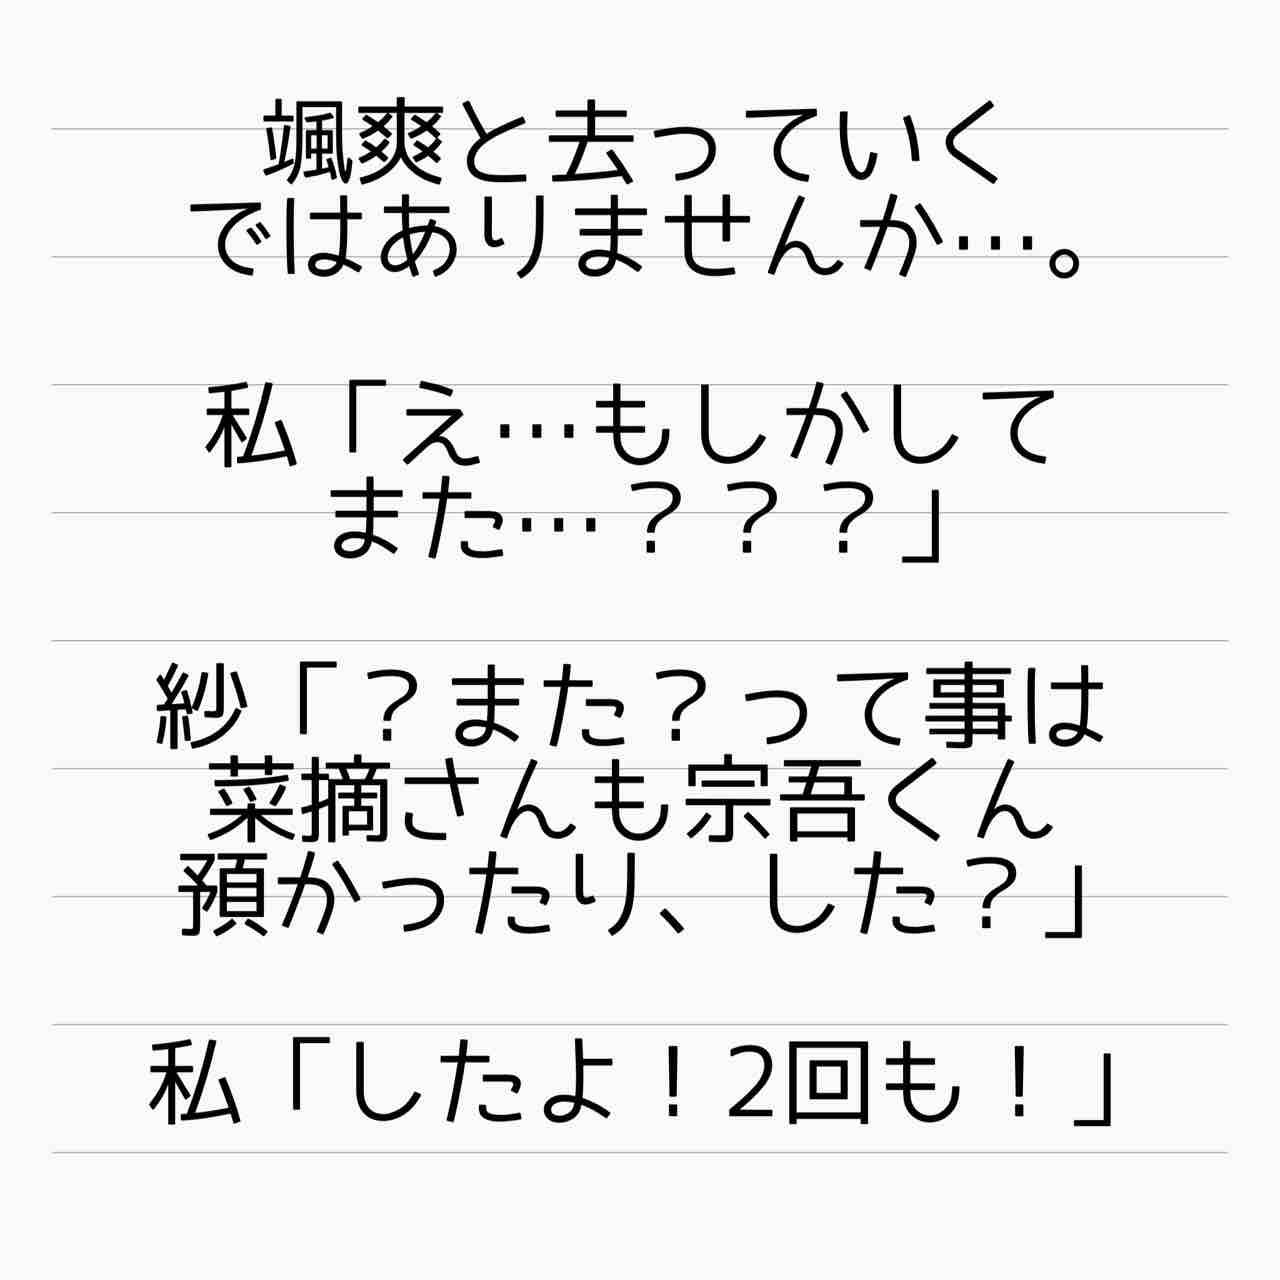 颯爽と去っていく
ではありませんか…。
私「え…もしかして
また…？？？」
紗「？また？って事は
菜摘さんも宗吾くん
預かったり、した？」
私「したよ！2回も！」